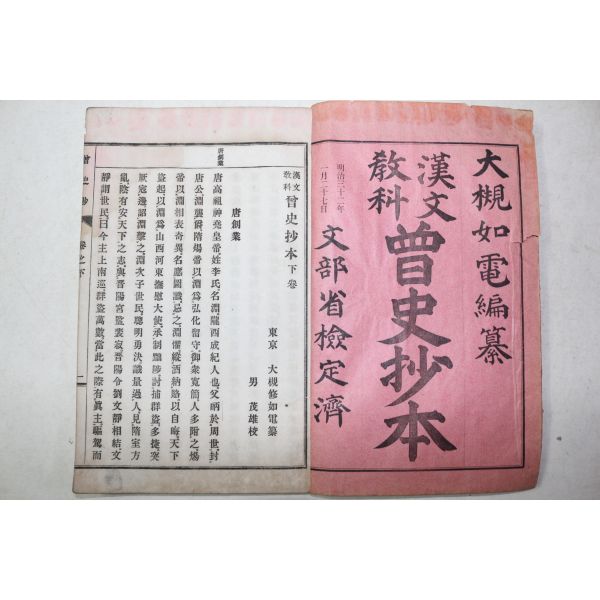 大槻如電編纂
漢文
教科
曾史抄本
明治三十二年
一月二十七日
文部省檢定濟
漢文
教科
曾史抄本下卷
東京 大槻修如電纂
男 茂雄校
唐創業
唐創業
唐高祖神堯皇帝姓李氏名淵隴西成紀人也父昞於周世封
唐公淵襲爵隋煬帝以淵爲弘化留守御衆寬簡人多附之煬
帝以淵相表奇異名應圖讖忌之淵懼縱酒納賂以自晦天下
盜起以淵爲山西河東撫慰大使承制黜陟討捕群盜多捷突
厥寇邊詔淵擊之淵次子世民聰明勇決識量過人見隋室方
亂陰有安天下之志與晉陽宮監裴寂晉陽令劉文靜相結文
靜謂世民曰今主上南巡群盜萬數當此之際有眞主驅駕而
曾史抄 卷之下 一